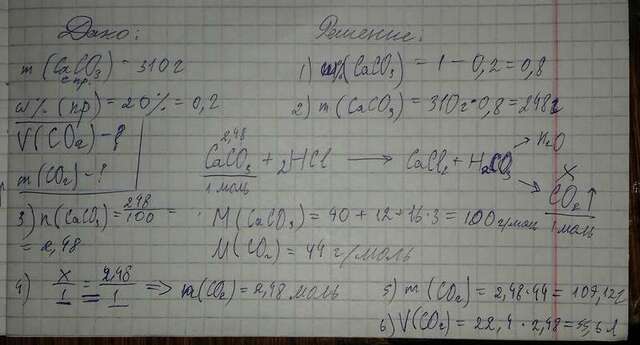 Дано:
m (CaCO3) - 310г
с пр.
ω% (пр) = 20% = 0,2
V(CO2) - ?
m (CO2) - ?
Решение:
1) ω%(CaCO3) = 1 - 0,2 = 0,8
2) m (CaCO3) = 310г · 0,8 = 248г
2,48 x
CaCO3 + 2HCl → CaCl2 + H2CO3 → H2O → CO2↑
1 моль 1 моль
3) n(CaCO3) = 248/100 =
= 2,48
M (CaCO3) = 40 + 12 + 16·3 = 100 г/моль
M (CO2) = 44 г/моль
4) x/1 = 2,48/1 => n(CO2) = 2,48 моль
5) m (CO2) = 2,48·44 = 109,12г
6) V(CO2) = 22,4 · 2,48 = 55,6 л